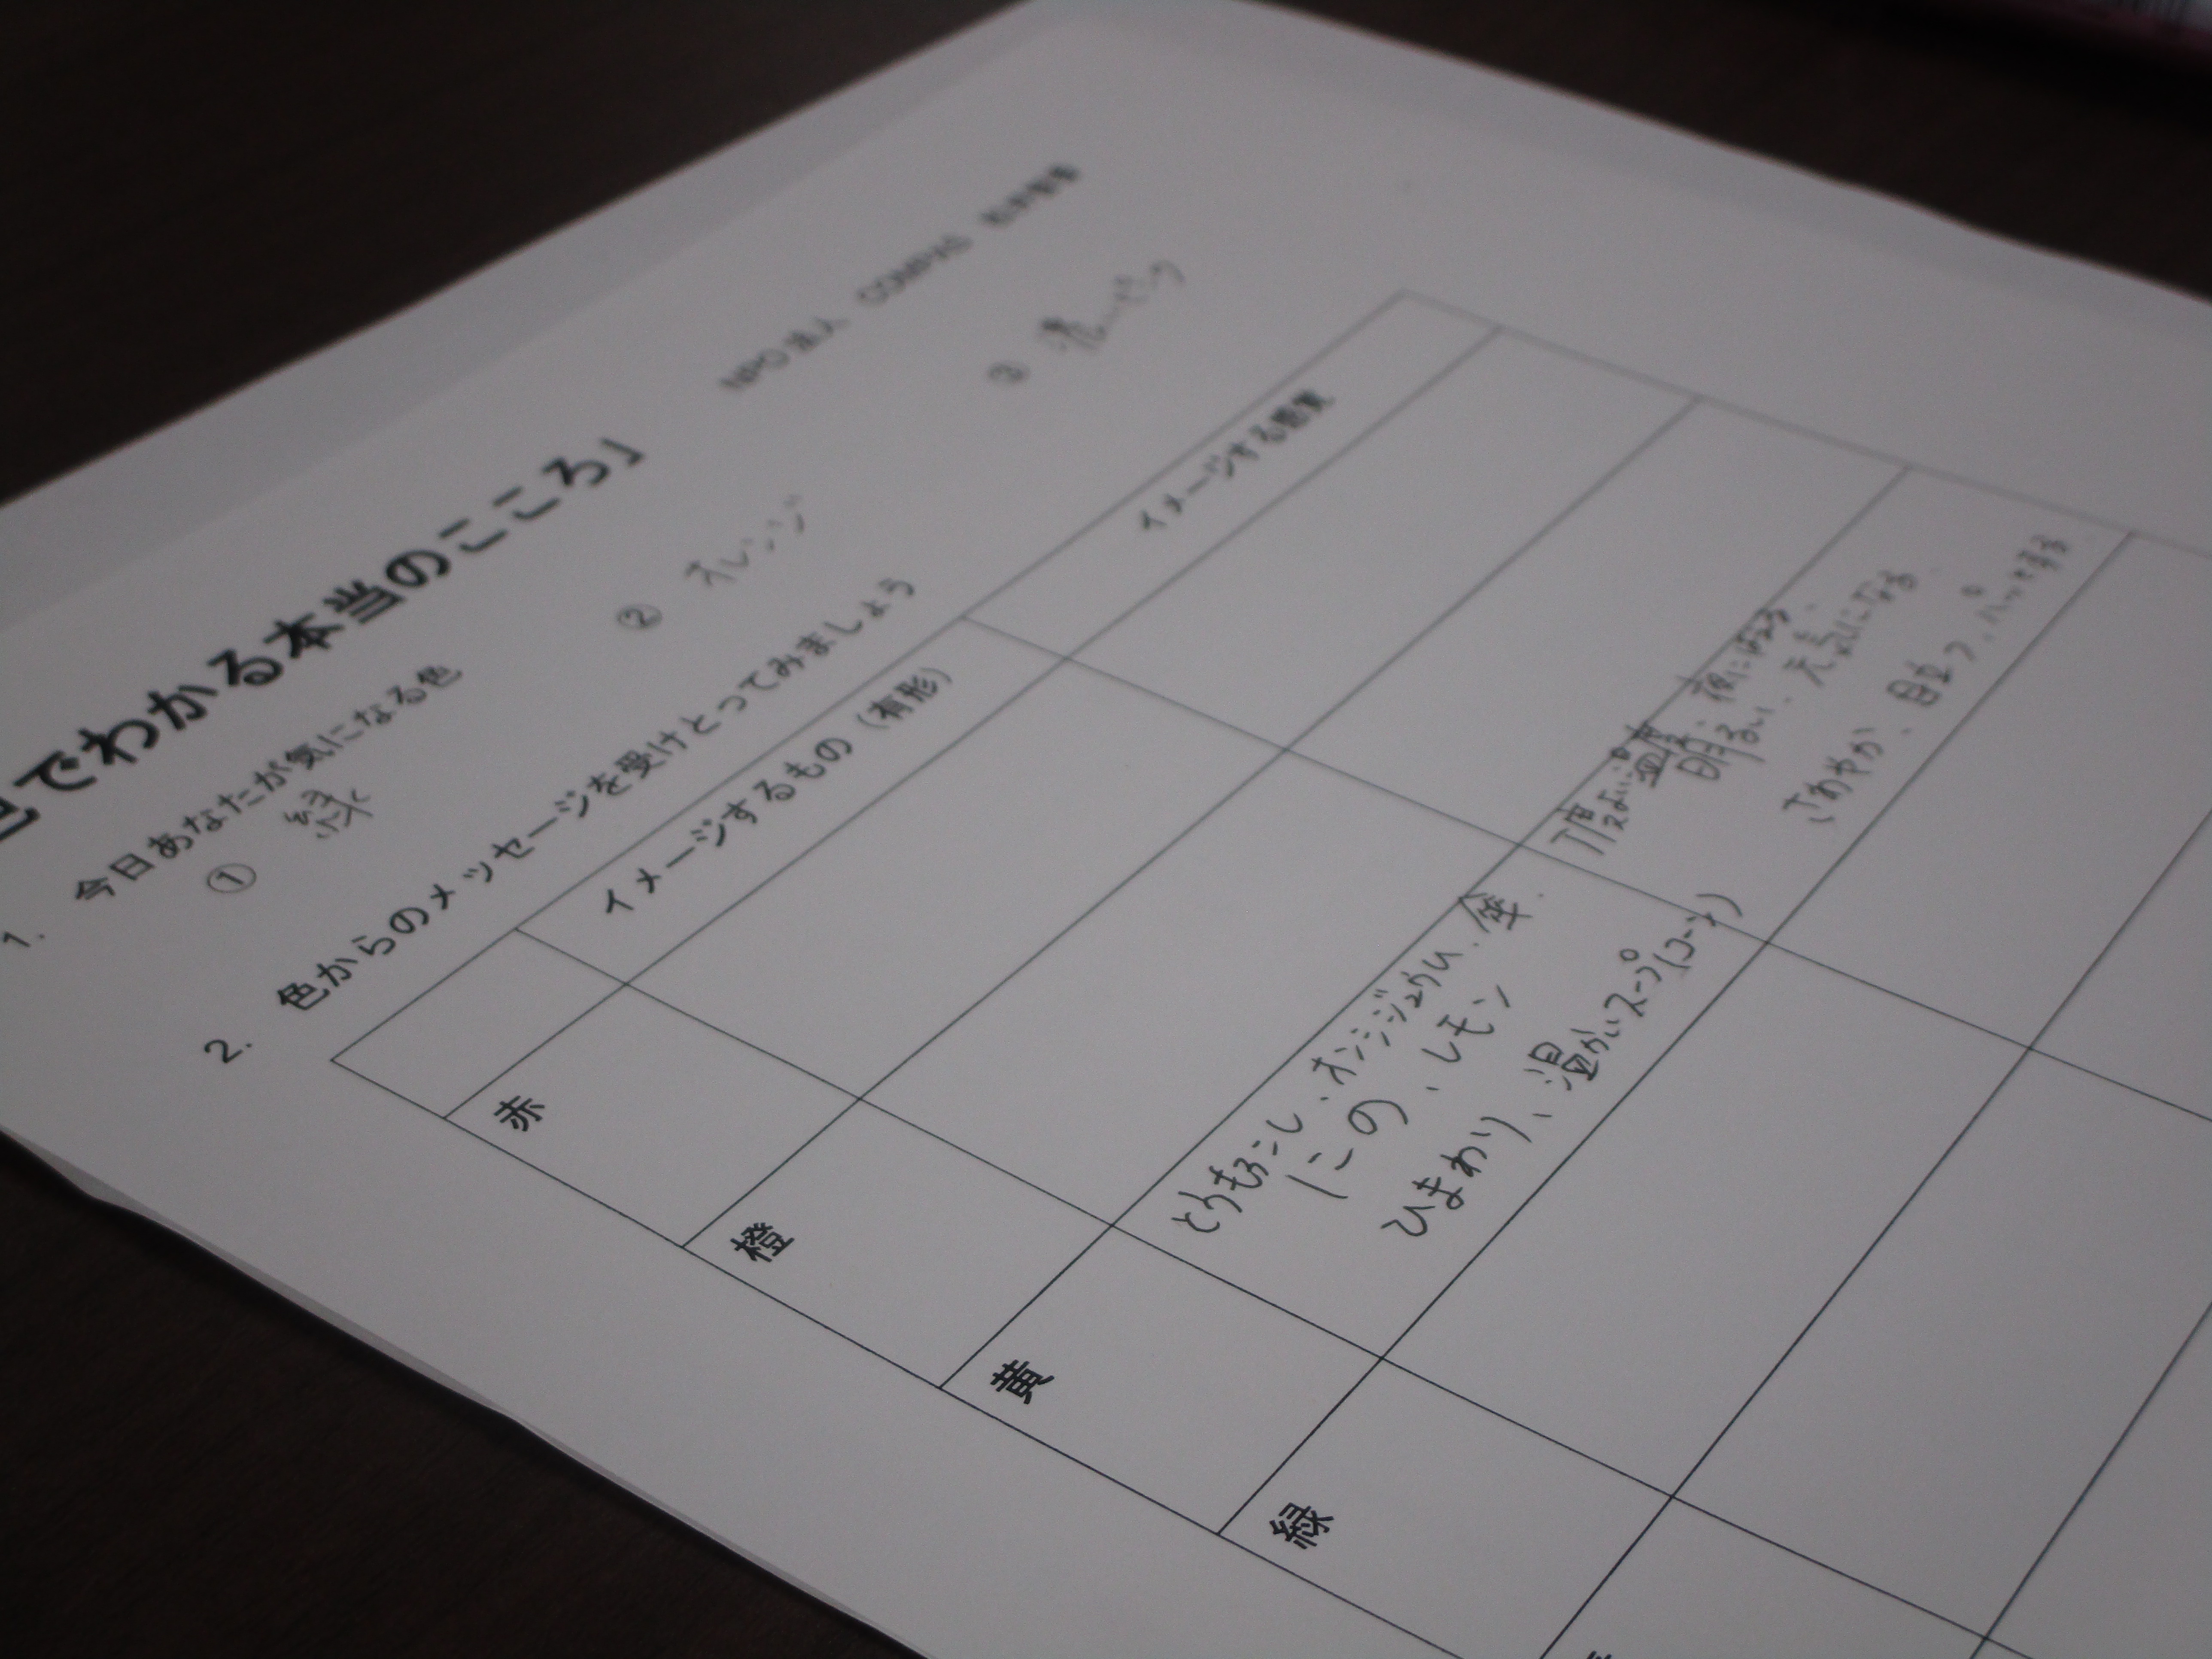 でわかる本当のこころ」
NPO法人
1. 今日あなたが気になる色
① 緑 ② オレンジ ③
2. 色からのメッセージを受けとってみましょう
イメージするもの（有形） イメージする
赤
橙
黄
とうもろこし、オレンジジュース、金、
きのこ、レモン
ひまわり、温かいスープ(コーン)
丁度よい温度、夜にほっこり、
明るい、元気になる
さわやか、目立つ、パッとする
緑